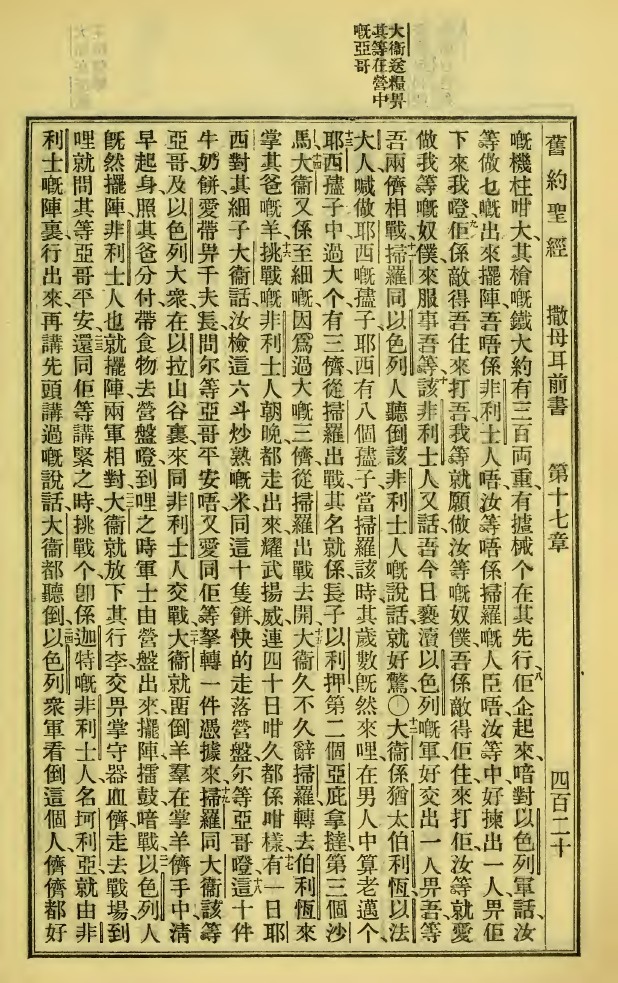 大衞送糧畀
其等在營中
嘅亞哥
舊約聖經 撒母耳前書 第十七章 四百二十
嘅機柱咁大、其槍嘅鐵大約有三百両重、有㨿械个在其先行、八佢企起來、喑對以色列軍話、汝
等做乜嘅出來擺陣、吾唔係非利士人、唔汝等唔係掃羅嘅人臣唔、汝等中好揀出一人畀佢
下來我嶝、九佢係敵得吾住、來打吾、我等就願做汝等嘅奴僕、吾係敵得佢住、來打佢、汝等就愛
做我等嘅奴僕、來服事吾等、十該非利士人又話、吾今日褻瀆以色列嘅軍、好交出一人畀吾等
吾兩儕相戰、十一掃羅同以色列人聽倒該非利士人嘅說話、就好驚、〇十二大衞係猶太伯利恆以法
大人、喊做耶西嘅孻子、耶西有八個孻子、當掃羅該時、其歲數旣然來哩、在男人中算老邁个、
十三耶西孻子中過大个、有三儕從掃羅出戰、其名就係長子以利押、第二個亞庇拿撻、第三個沙
馬、十四大衞又係至細嘅、因爲過大嘅三儕、從掃羅出戰去開、十五大衞久不久辭掃羅轉去伯利恆、來
掌其爸嘅羊、十六挑戰嘅非利士人、朝晚都走出來耀武揚威、連四十日咁久、都係咁樣、十七有一日、耶
西對其細子大衞話、汝檢這六斗炒熟嘅米、同這十隻餅、快的走落營盤尔等亞哥嶝、十八這十件
牛奶餅、愛帶畀千夫長、問尔等亞哥平安唔、又愛同佢等拏轉一件憑據來、十九掃羅同大衞該等
亞哥、及以色列大衆、在以拉山谷裏、來同非利士人交戰、二十大衞就畱倒羊羣在掌羊儕手中、淸
早起身、照其爸分付、帶食物去營盤嶝、到哩之時、軍士由營盤出來擺陣、擂鼓喑戰、二一以色列人
旣然擺陣、非利士人也就擺陣、兩軍相對、二二大衞就放下其行李、交畀掌守器皿儕、走去戰場、到
哩就問其等亞哥平安、二三還同佢等講緊之時、挑戰个卽係迦特嘅非利士人、名坷利亞、就由非
利士嘅陣裏、行出來、再講先頭講過嘅說話、大衞都聽倒、二四以色列衆軍看倒這個人、儕儕都好